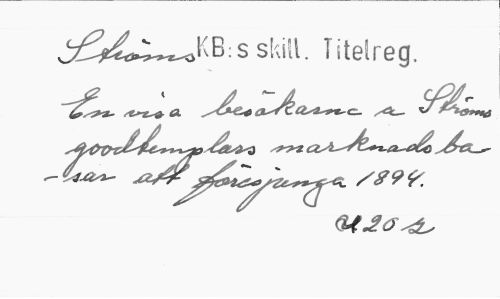 Ströms KB:s skill. Titelreg.
En visa besökarne a Ströms
goodtemplars marknadsba-
-sar att föresjunga 1894.
U 20 z